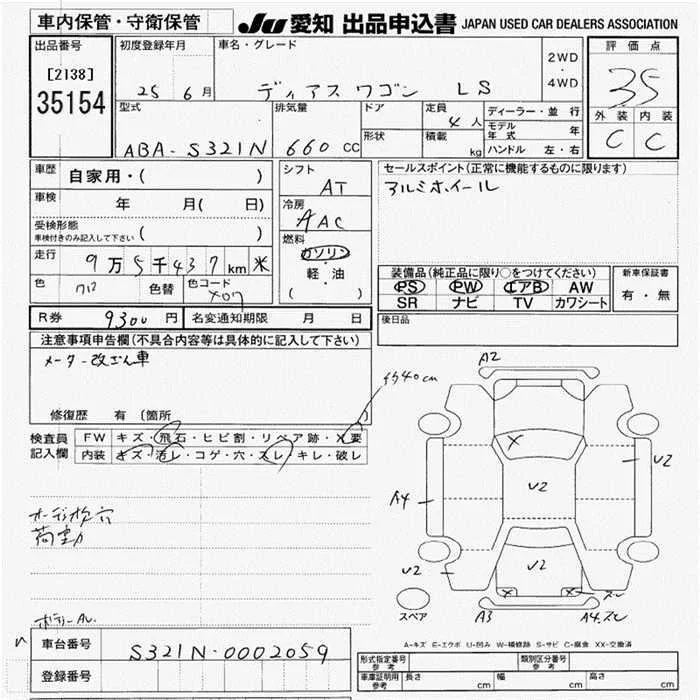 車内保管・守衛保管
JU 愛知 出品申込書 JAPAN USED CAR DEALERS ASSOCIATION
出品番号
[2138]
35154
初度登録年月
25 6月
車名・グレード
ディアス ワゴン LS
2WD
・
4WD
評価点
35
外装 内装
C C
型式
ABA-S321N
排気量
660 CC
ドア
形状
定員
4人
積載
kg
ディーラー・並 行
モデル年式 年
ハンドル 左・右
車歴
自家用・( )
車検
年 月( 日)
受検形態
車検付きのみ記入して下さい ( )
走行
9万5千437km 米
色
色替
色コード
X07
シフト
AT
冷房
AAC
燃料
ガソリン
軽・油
( )
セールスポイント(正常に機能するものに限ります)
アルミホイール
装備品(純正品に限り○をつけてください)
PS PW エアB AW
SR ナビ TV カワシート
新車保証書
有・無
後日品
R券 9300円
名変通知期限 月 日
注意事項申告欄(不具合内容等は具体的に記入して下さい)
メーター改ざん車
修復歴 有 〔箇所 〕
検査員記入欄
FW キズ・飛石・ヒビ割・リペア跡・X要
内装 キズ・汚レ・コゲ・穴・スレ・キレ・破レ
荷動
40cm
A2
U2
U2
A4
U2
U2
A3
スペア
A-キズ E-エクボ U-凹み W-補修跡 S-サビ C-腐食 XX-交換済
車台番号
S321N-0002059
登録番号
形式指定番号
参考
類別区分番号
参考
車庫証明用
参考
長さ cm
幅 cm
高さ cm